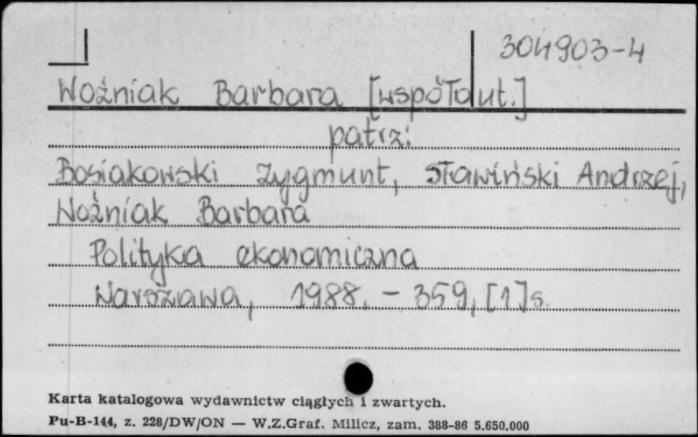 304903-4
Woźniak Barbara [współaut.]
patrz:
Bosiakowski Zygmunt, Sławiński Andrzej,
Woźniak Barbara
Polityka ekonomiczna
Warszawa, 1988. - 359, [1] s.
Karta katalogowa wydawnictw ciągłych i zwartych.
Pu-B-144, z. 228/DW/ON — W.Z.Graf. Milicz, zam. 388-86 5.650.000